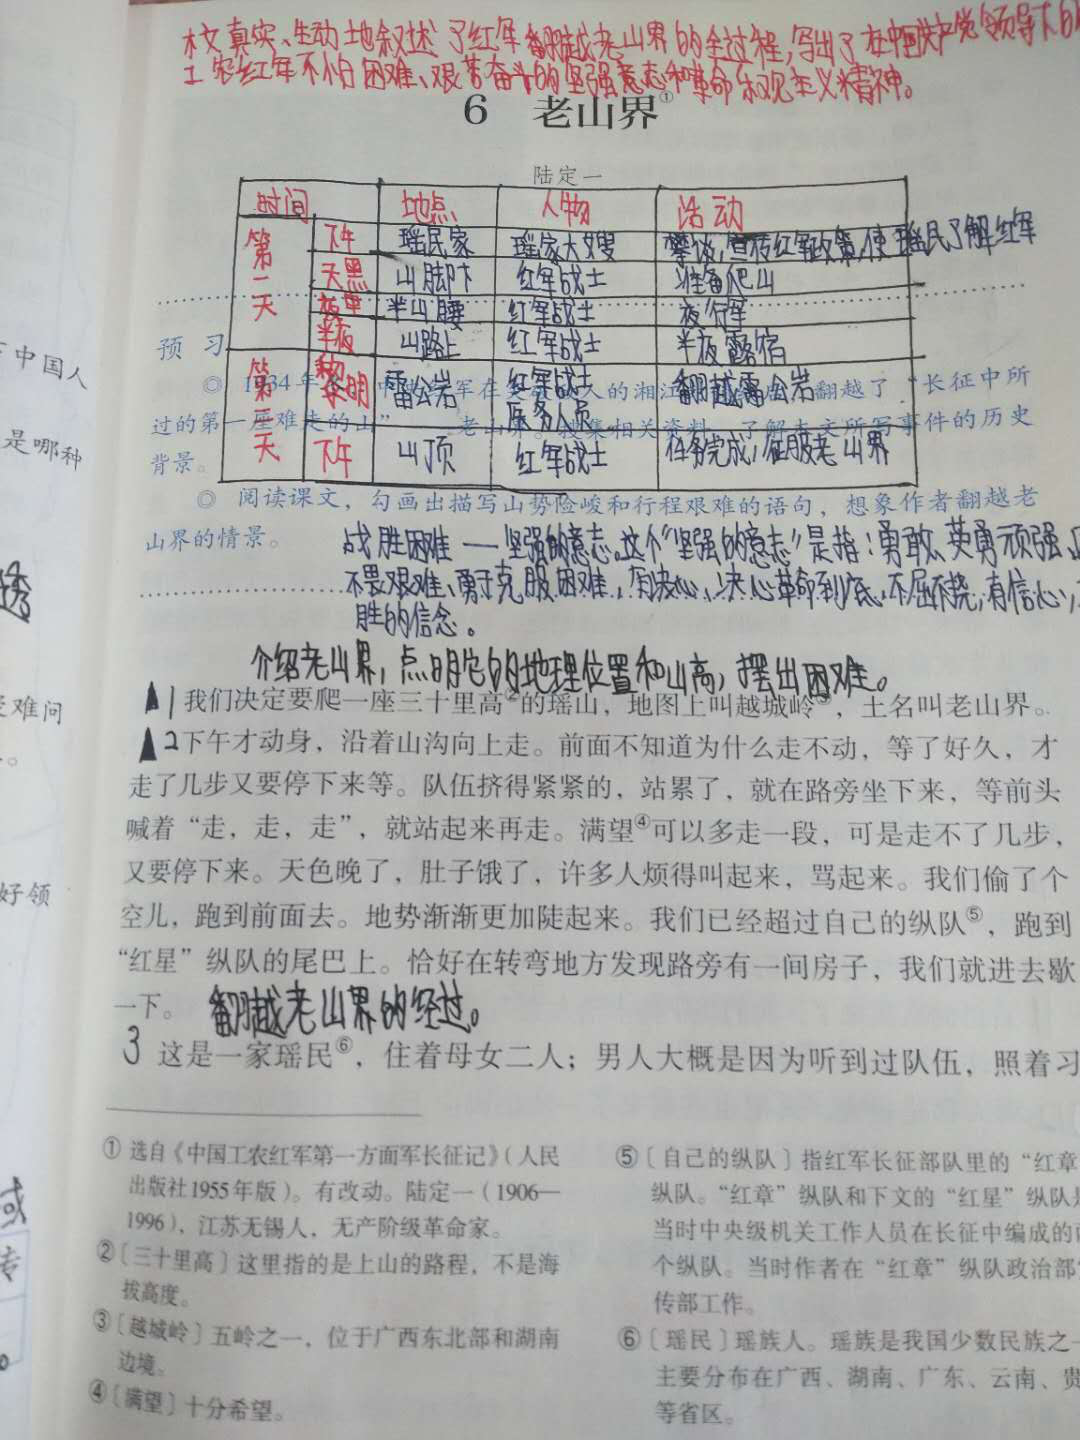 本文真实、生动地叙述了红军翻越老山界的全过程,写出了在中国共产党领导下的
工农红军不怕困难、艰苦奋斗的坚强意志和革命乐观主义精神。
6 老山界①
陆定一
时间 地点 人物 活动
第一天 下午 瑶民家 瑶家大嫂 攀谈,宣传红军政策,使瑶民了解红军
天黑 山脚下 红军战士 准备爬山
夜里 半山腰 红军战士 夜行军
半夜 山路上 红军战士 半夜露宿
预习
第二天 黎明 雷公岩 红军战士 医务人员 翻越雷公岩
下午 山顶 红军战士 任务完成,征服老山界
◎ 1934年 军在 人的湘江 翻越了“长征中所
过的第一座难走的山” 老山界。搜集相关资料,了解本文所写事件的历史
背景。
◎ 阅读课文,勾画出描写山势险峻和行程艰难的语句,想象作者翻越老
山界的情景。
战胜困难——坚强的意志。这个“坚强的意志”是指:勇敢、英勇顽强、
不畏艰难、勇于克服困难,有决心、决心革命到底,不屈不挠,有信心,
胜的信念。
介绍老山界,点明它的地理位置和山高,摆出困难。
▲1我们决定要爬一座三十里高②的瑶山,地图上叫越城岭③,土名叫老山界。
▲2下午才动身,沿着山沟向上走。前面不知道为什么走不动,等了好久,才
走了几步又要停下来等。队伍挤得紧紧的,站累了,就在路旁坐下来,等前头
喊着“走,走,走”,就站起来再走。满望④可以多走一段,可是走不了几步,
又要停下来。天色晚了,肚子饿了,许多人烦得叫起来,骂起来。我们偷了个
空儿,跑到前面去。地势渐渐更加陡起来。我们已经超过自己的纵队⑤,跑到
“红星”纵队的尾巴上。恰好在转弯地方发现路旁有一间房子,我们就进去歇
一下。 翻越老山界的经过。
3 这是一家瑶民⑥,住着母女二人;男人大概是因为听到过队伍,照着习
① 选自《中国工农红军第一方面军长征记》(人民
出版社1955年版)。有改动。陆定一(1906—
1996),江苏无锡人,无产阶级革命家。
②〔三十里高〕这里指的是上山的路程,不是海
拔高度。
③〔越城岭〕五岭之一,位于广西东北部和湖南
边境。
④〔满望〕十分希望。
⑤〔自己的纵队〕指红军长征部队里的“红章
纵队。“红章”纵队和下文的“红星”纵队是
当时中央级机关工作人员在长征中编成的两
个纵队。当时作者在“红章”纵队政治部宣
传部工作。
⑥〔瑶民〕瑶族人。瑶族是我国少数民族之一
主要分布在广西、湖南、广东、云南、贵
等省区。
中国人
是哪种
透
难问
好领
域
专